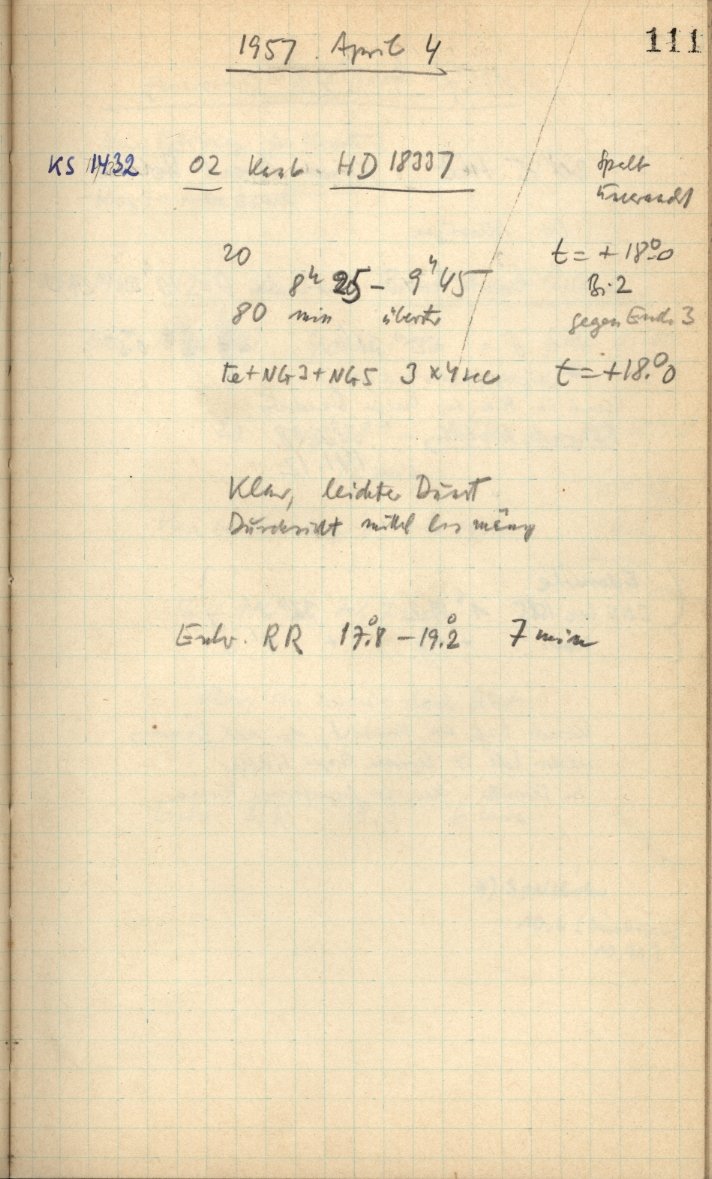 111
1957 April 4
KS 1432 02 HD 18337 Spalt
20 t = + 18°.0
8ʰ 25 – 9ʰ 45 Bi. 2
80 min gegen Ende 3
Fe+NG3+NG5 3 x 4 sec t = +18.°0
Klar, leichter Dunst
Durchsicht mittel bis mäßig
Entw. RR 17°.8 – 19°.2 7 min